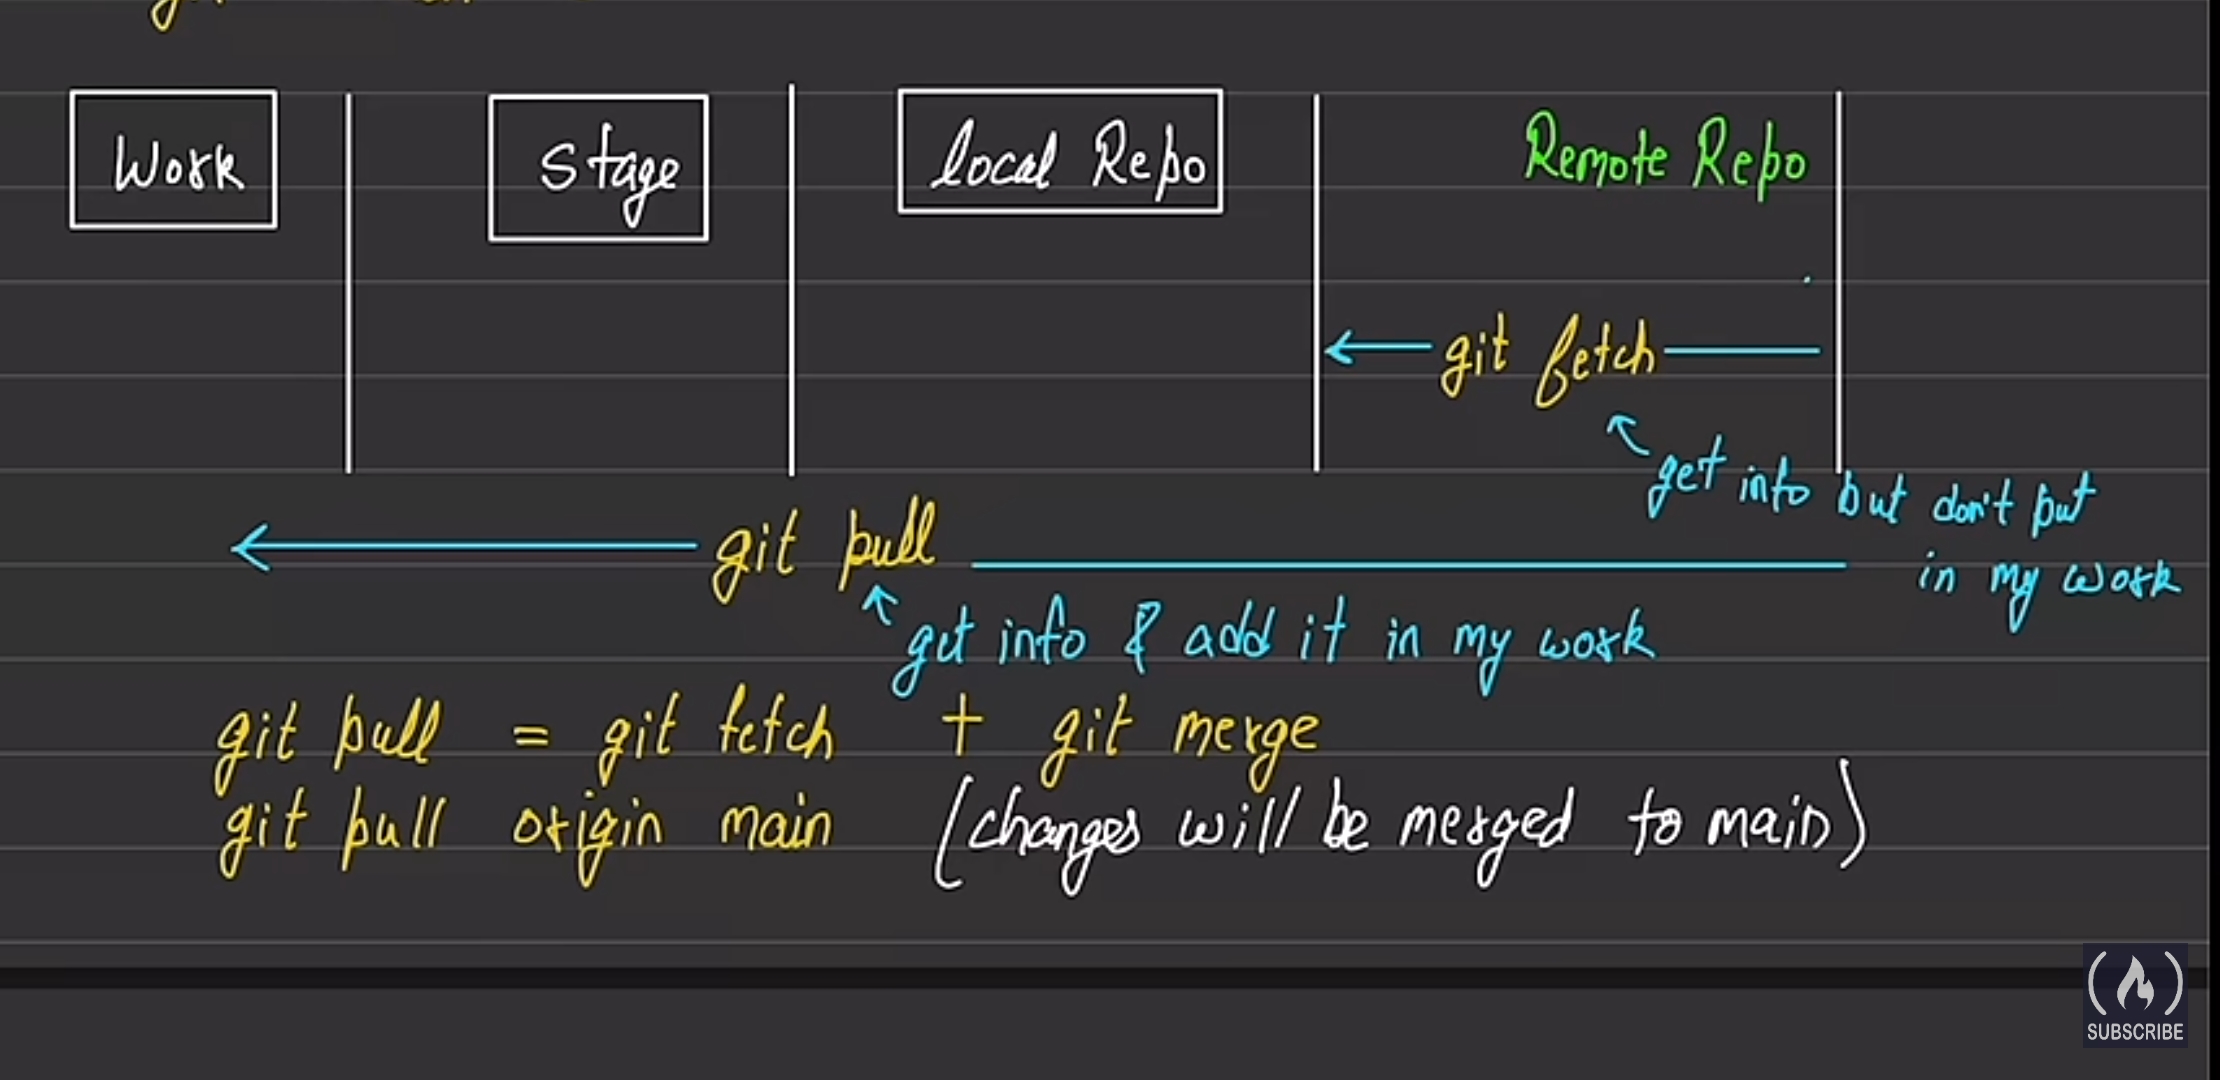 Work Stage local Repo Remote Repo
git fetch
get info but don't put
in my work
git pull
get info & add it in my work
git pull = git fetch + git merge
git pull origin main (changes will be merged to main)
SUBSCRIBE